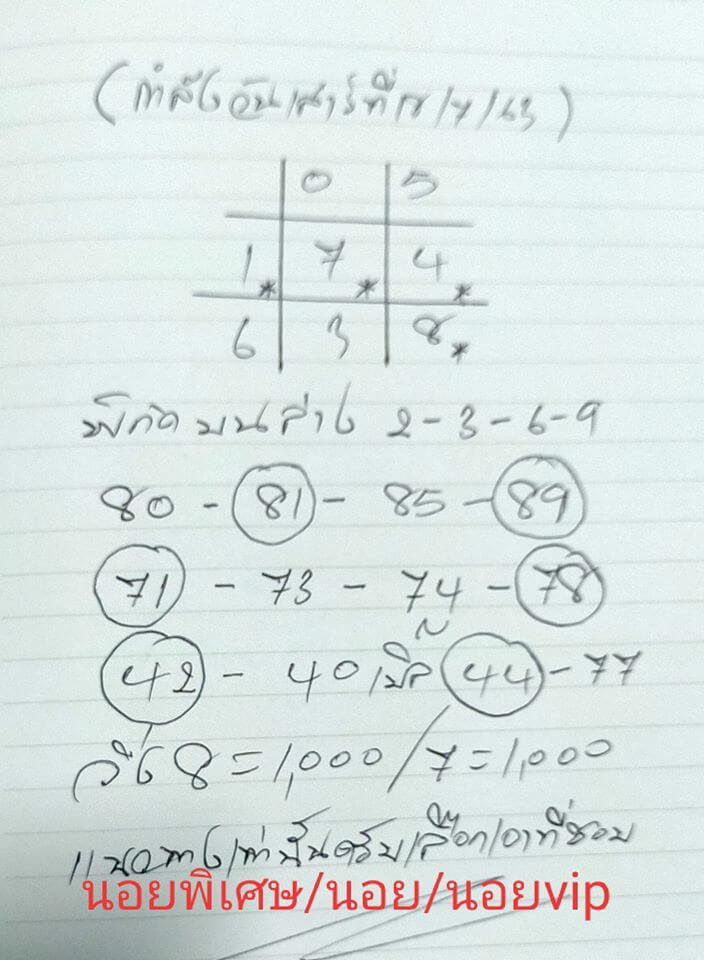 (กำลังวันเสาร์ที่
0 5
1* 7* 4*
6 3 8*
พิกัด บนล่าง 2-3-6-9
80 - 81 - 85 - 89
71 - 73 - 74 - 78
42 - 40 เบิ้ล 44 - 77
วิ่ง 8 = 1,000 / 7 = 1,000
แนวทางเท่านั้นครับเลือกเอาที่ชอบ
นอยพิเศษ/นอย/นอยvip